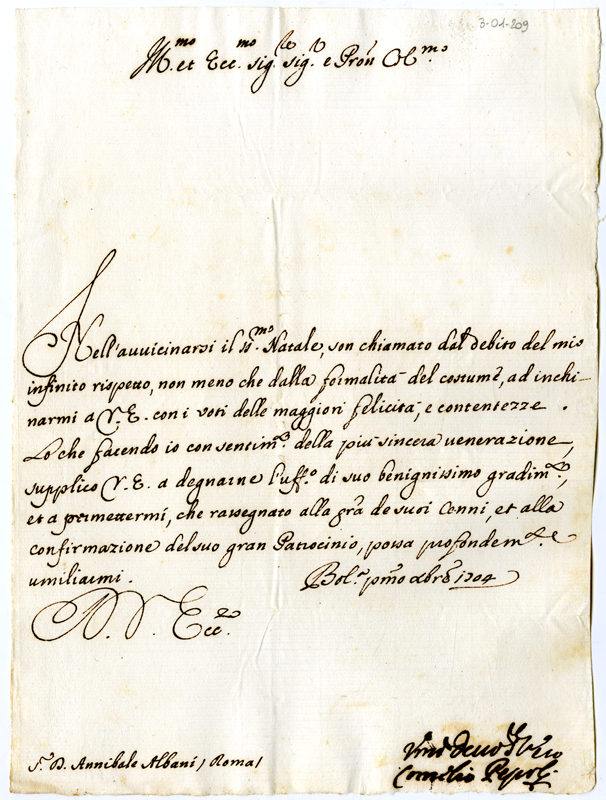 3-01-209
Ill.mo et Ecc.mo Sig.re Sig.r e Pron Col.mo
Nell'avvicinarsi il SS.mo Natale, son chiamato dal debito del mio
infinito rispetto, non meno che dalla formalità del costume, ad inchi-
narmi a V. E. con i voti delle maggiori felicità, e contentezze.
Lo che facendo io con sentim.to della più sincera venerazione,
supplico V. E. a degnarne l'uff.o di suo benignissimo gradim.to,
et a permettermi, che rassegnato alla grã de suoi Cenni, et alla
confirmazione del suo gran Patrocinio, possa profondem.te
umiliarmi. Bol.a pmo Xbre 1704
D. V. Ecc.za
S.r D. Annibale Albani / Roma /
Cornelio Pepoli